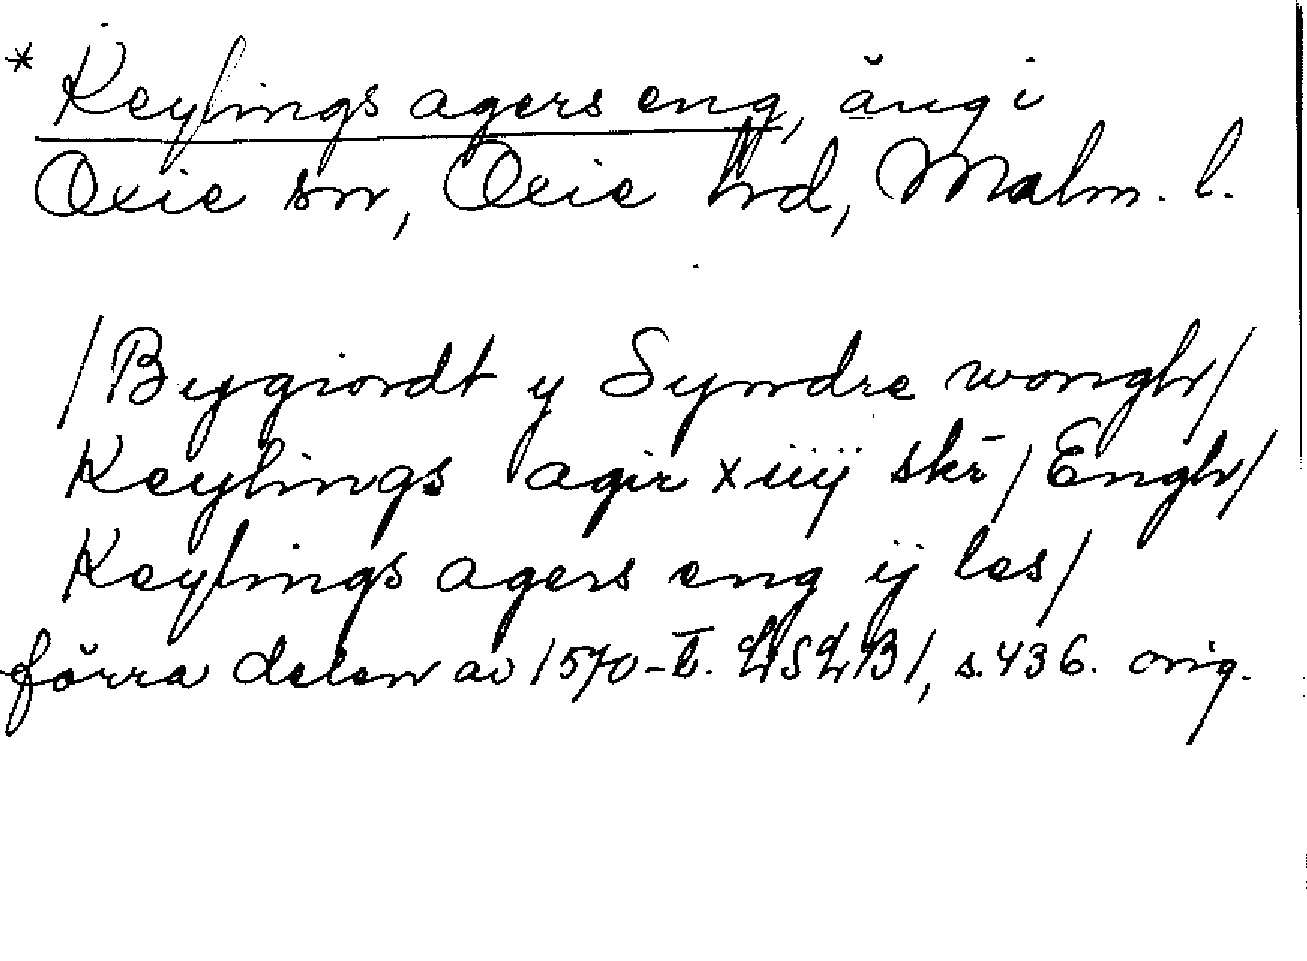 * Keylings agers eng, äng i
Oxie sn, Oxie hrd, Malm. l.
/Bygiordt y Syndre wongh/
Keylings agir xiiij skr̄ / Engh/
Keylings agers eng ij les/
förra delen av 1570-t. LSLB1, s. 436. orig.